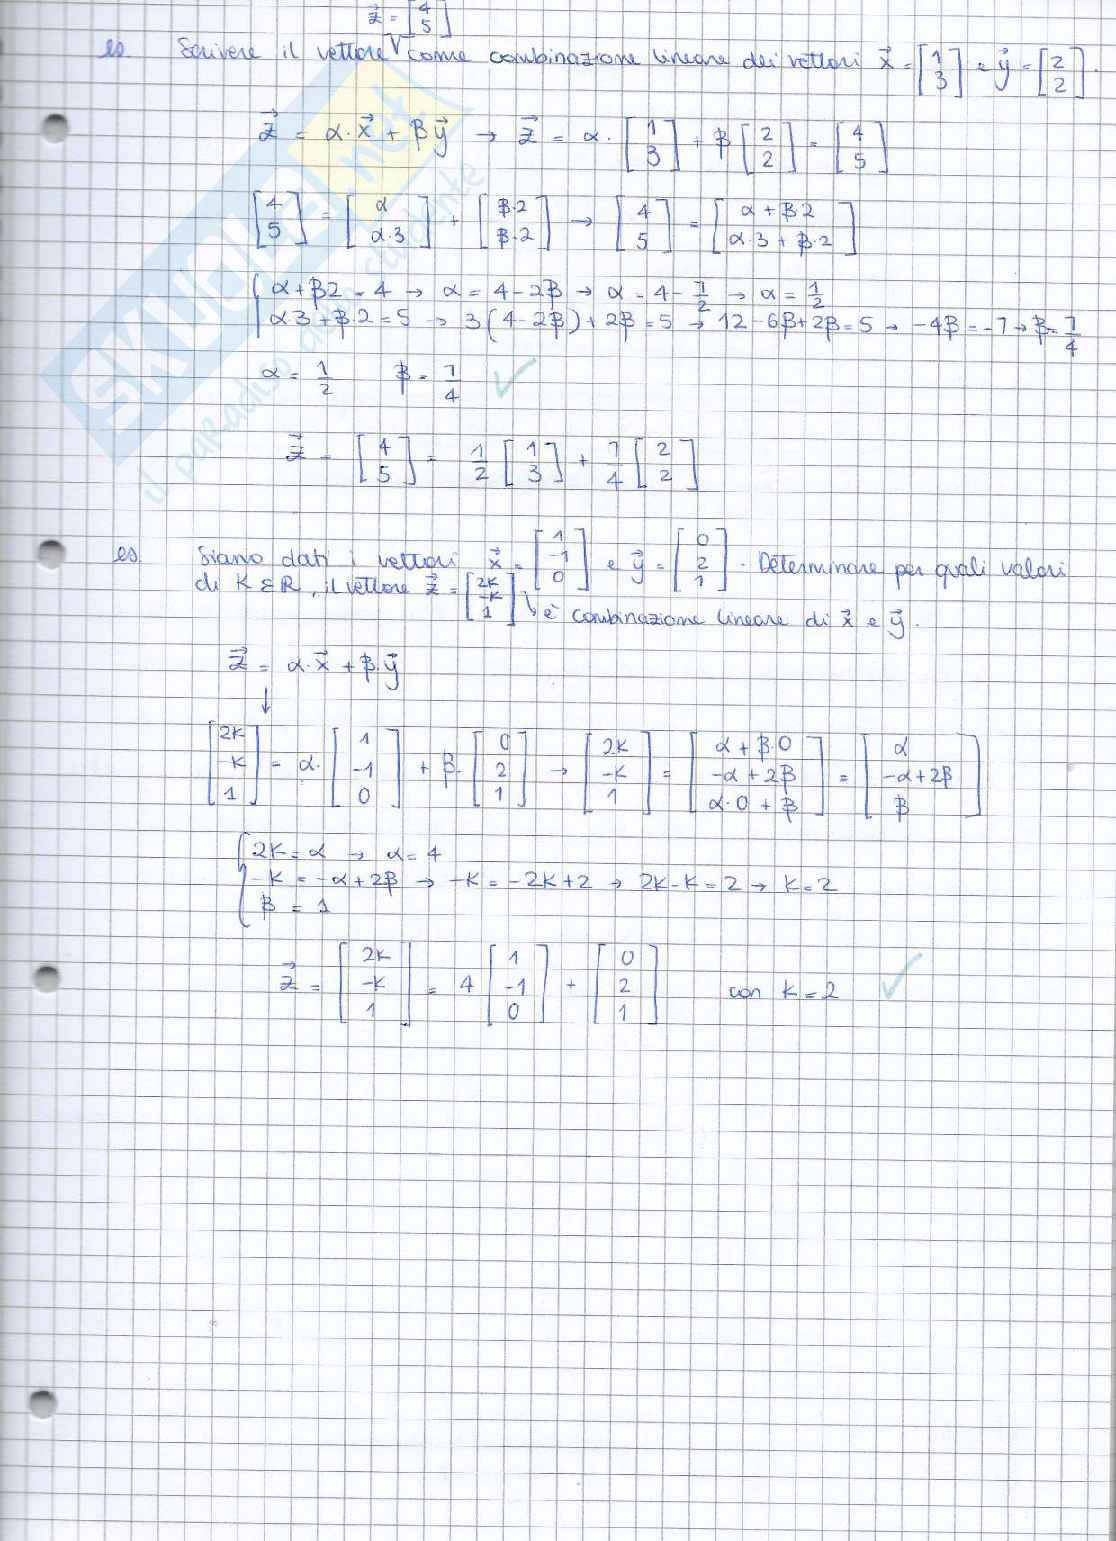 z⃗ = [4 5]
es. Scrivere il vettore √ come combinazione lineare dei vettori x⃗ = [1 3] e y⃗ = [2 2].
z⃗ = α·x⃗ + βy⃗ → z⃗ = α·[1 3] + β[2 2] = [4 5]
[4 5] = [α α·3] + [β·2 β·2] → [4 5] = [α+β2 α·3+β·2]
{ α+β2 = 4 → α = 4-2β → α = 4 - 7/2 → α = 1/2
α3+β2 = 5 → 3(4-2β)+2β = 5 → 12-6β+2β = 5 → -4β = -7 → β = 7/4
α = 1/2 β = 7/4 ✓
z⃗ = [4 5] = 1/2 [1 3] + 7/4 [2 2]
es. Siano dati i vettori x⃗ = [1 -1 0] e y⃗ = [0 2 1]. Determinare per quali valori
di K ∈ R, il vettore z⃗ = [2K -K 1] è combinazione lineare di x⃗ e y⃗.
z⃗ = α·x⃗ + β·y⃗
↓
[2K -K 1] = α·[1 -1 0] + β·[0 2 1] → [2K -K 1] = [α+β·0 -α+2β α·0+β] = [α -α+2β β]
{ 2K = α → α = 4
-K = -α+2β → -K = -2K+2 → 2K-K = 2 → K = 2
β = 1
z⃗ = [2K -K 1] = 4 [1 -1 0] + [0 2 1] con K = 2 ✓
SKUOLA.net
il paradiso dello studente